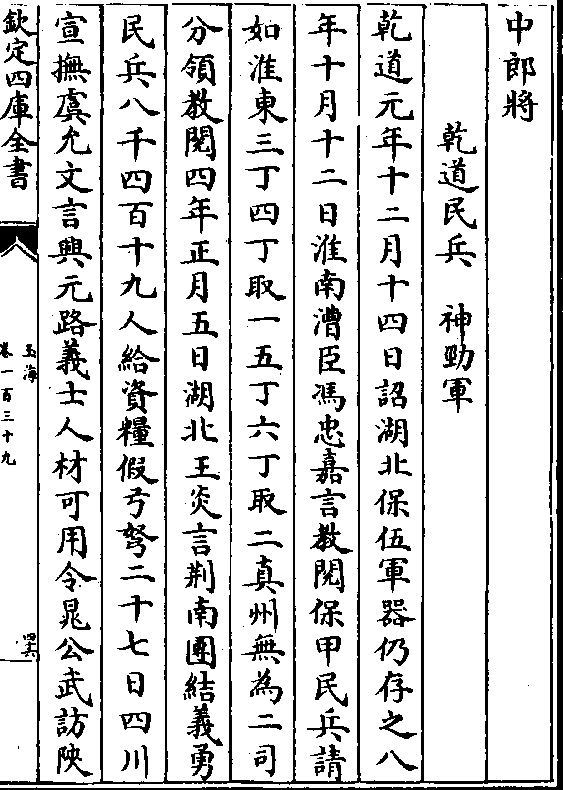 中郎將
乾道民兵　神勁軍
乾道元年十二月十四日詔湖北保伍軍器仍存之八
年十月十二日淮南漕臣馮忠嘉言教閱保甲民兵請
如淮東三丁四丁取一五丁六丁取二真州無為二司
分領教閱四年正月五日湖北王炎言荆南團結義勇
民兵八千四百十九人給資糧假弓弩二十七日四川
宣撫虞允文言興元路義士人材可用令晁公武訪陜
欽定四庫全書
玉海
卷一百三十九
四六